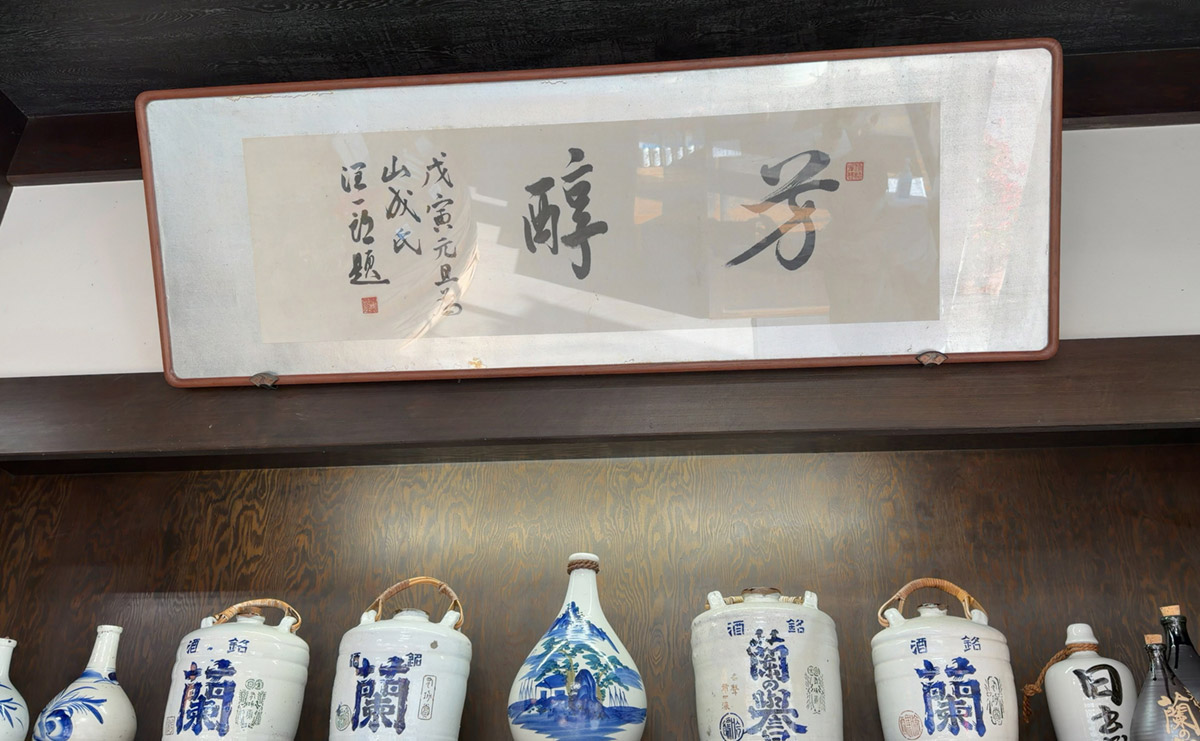 芳醇
戊寅元旦為
山成氏
汪一郎題
銘酒
蘭
銘酒
蘭
銘酒
蘭の誉
銘酒
蘭
蘭の